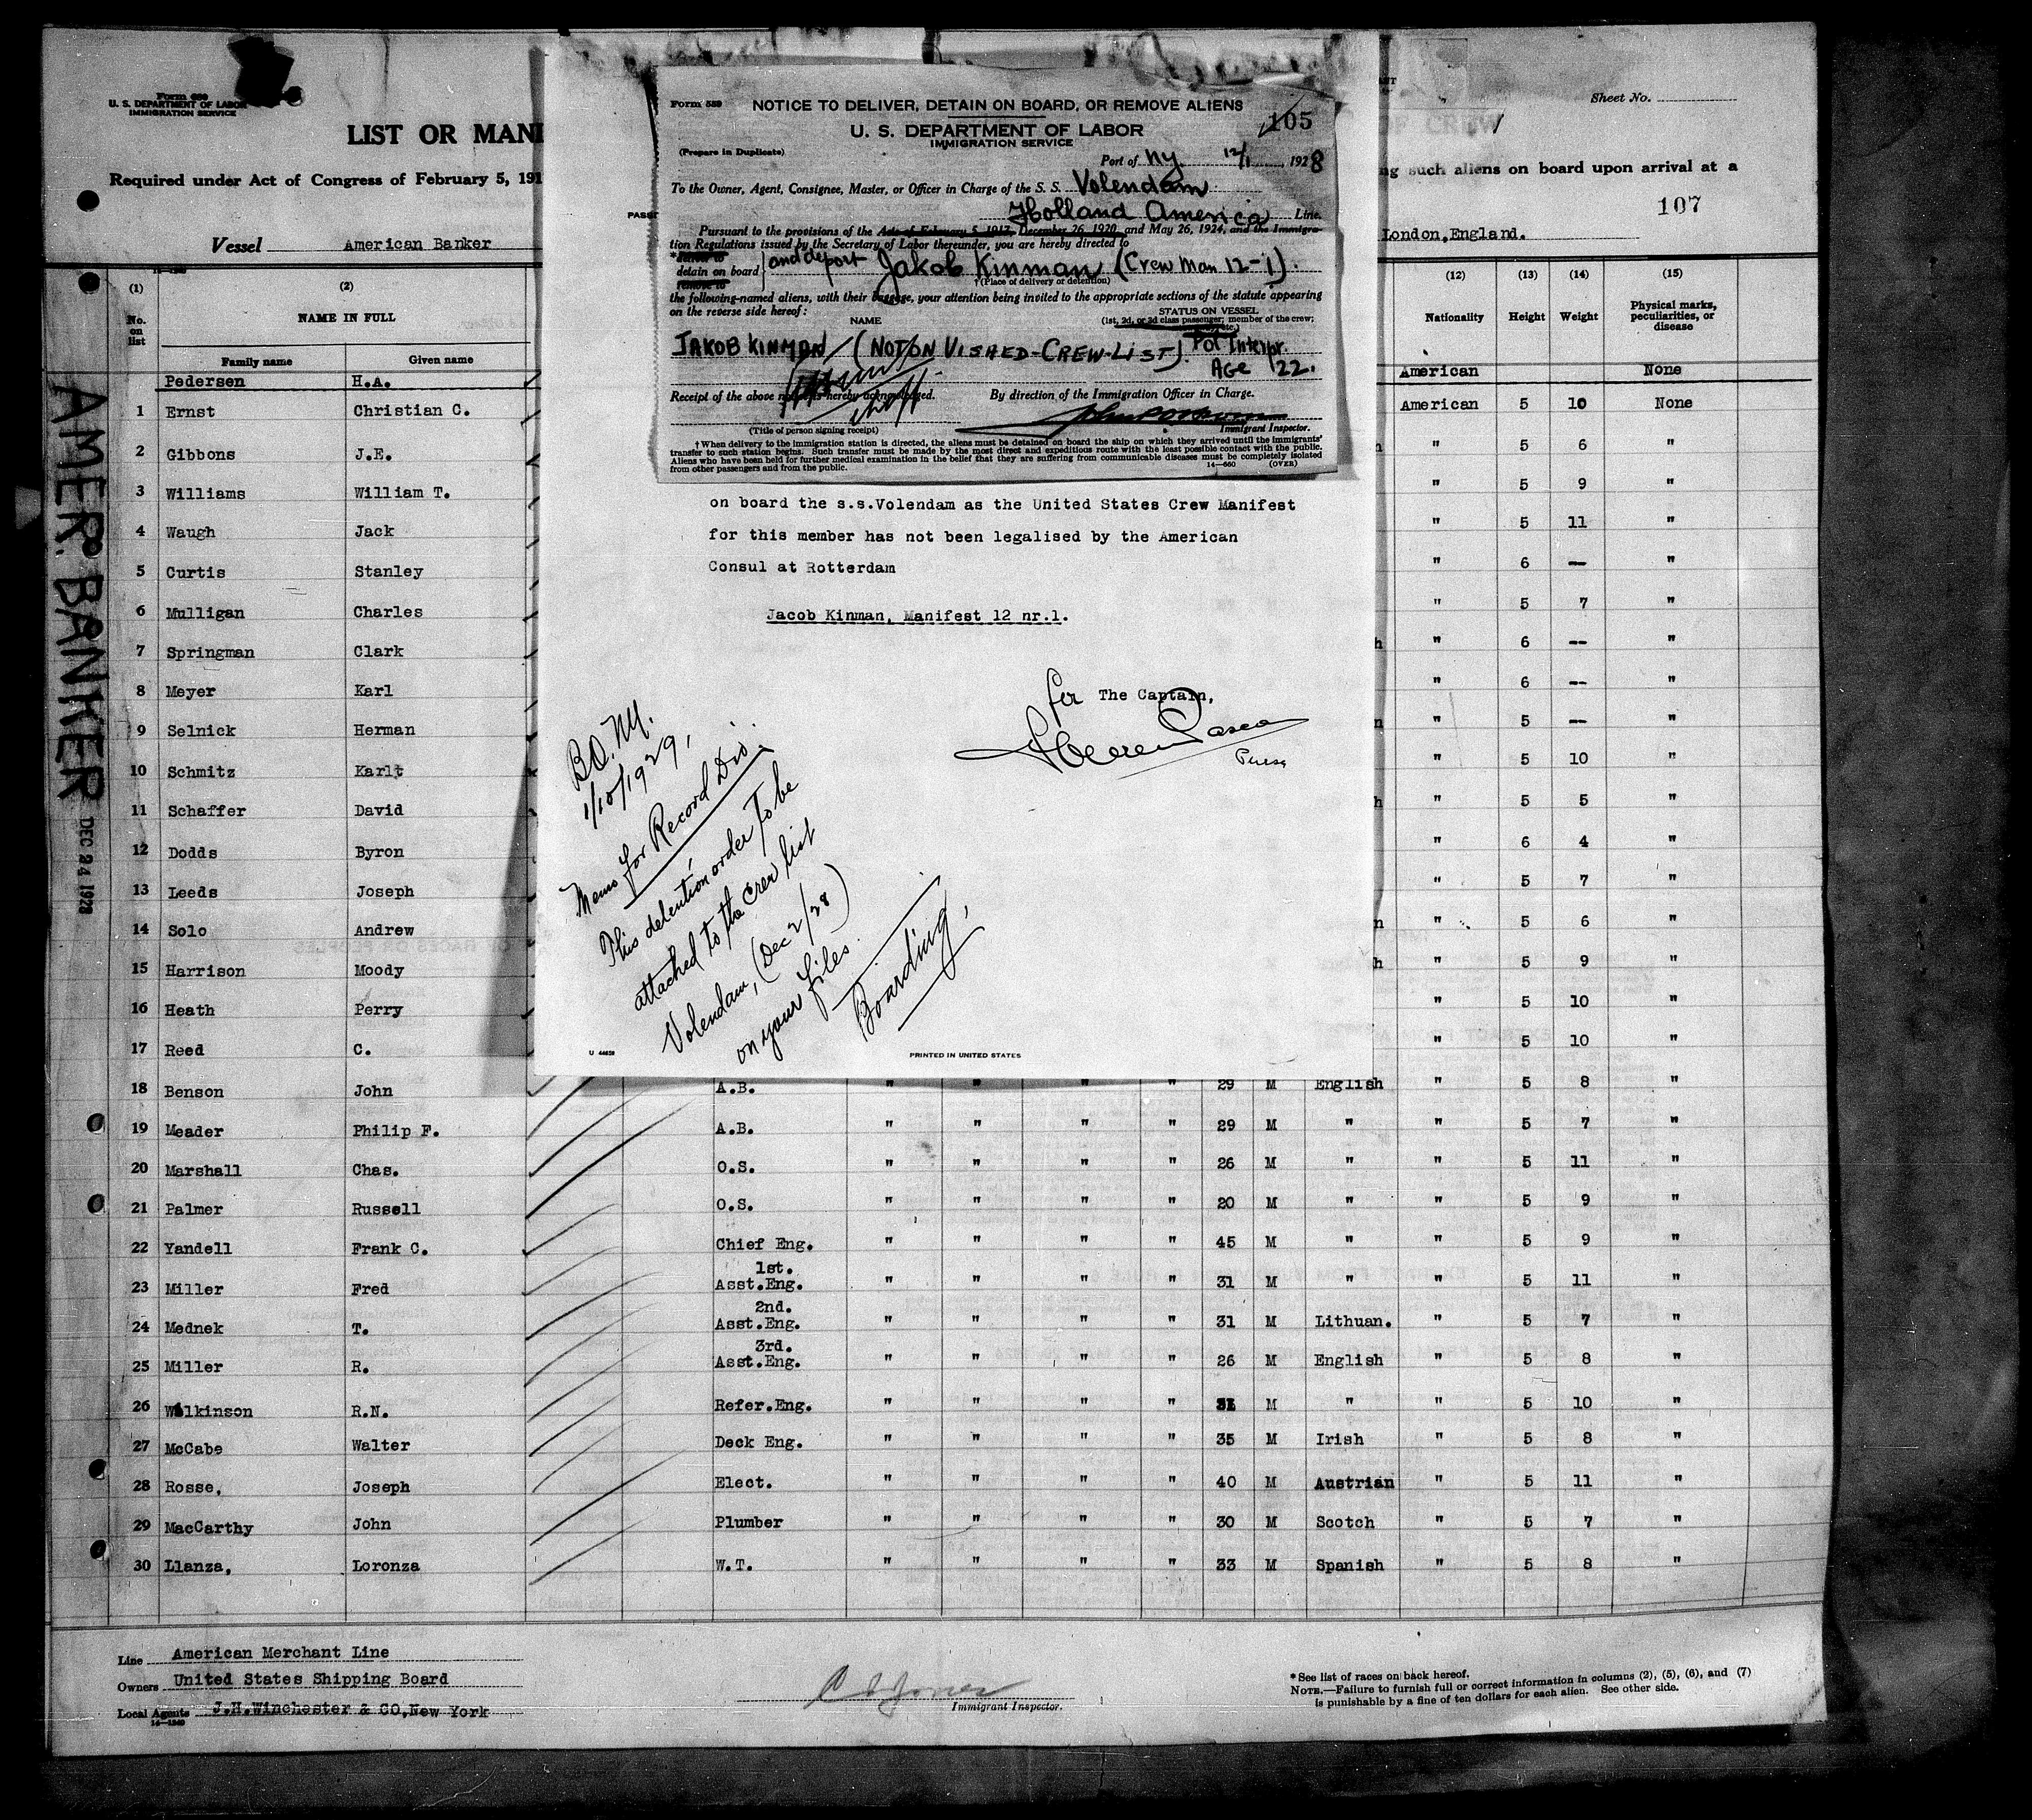 Form 680
U. S. DEPARTMENT OF LABOR
IMMIGRATION SERVICE
LIST OR MANI
Required under Act of Congress of February 5, 191
Vessel American Banker
Sheet No.
ng such aliens on board upon arrival at a
107
London,England.
AMER. BANKER DEC 24 1928
Form 559 NOTICE TO DELIVER, DETAIN ON BOARD, OR REMOVE ALIENS
105
U. S. DEPARTMENT OF LABOR
IMMIGRATION SERVICE
(Prepare in Duplicate)
Port of NY. 12/1, 1928
To the Owner, Agent, Consignee, Master, or Officer in Charge of the S. S. Volendam
Holland America Line.
Pursuant to the provisions of the Acts of February 5, 1917, December 26, 1920, and May 26, 1924, and the Immigra-
tion Regulations issued by the Secretary of Labor thereunder, you are hereby directed to
detain on board and deport Jakob Kinman (Crew Man 12-1).
remove to
†(Place of delivery or detention)
the following-named aliens, with their baggage, your attention being invited to the appropriate sections of the statute appearing
on the reverse side hereof:
NAME
STATUS ON VESSEL
(1st, 2d, or 3d class passenger; member of the crew;
etc.)
JAKOB KINMAN (NOT ON VISAED-CREW-LIST). Pol Interpr.
AGE 22.
Receipt of the above notice is hereby acknowledged.
By direction of the Immigration Officer in Charge.
(Title of person signing receipt)
Immigrant Inspector.
†When delivery to the immigration station is directed, the aliens must be detained on board the ship on which they arrived until the immigrants'
transfer to such station begins. Such transfer must be made by the most direct and expeditious route with the least possible contact with the public.
Aliens who have been held for further medical examination in the belief that they are suffering from communicable diseases must be completely isolated
from other passengers and from the public.
14—660 (OVER)
on board the s.s.Volendam as the United States Crew Manifest
for this member has not been legalised by the American
Consul at Rotterdam
Jacob Kinman, Manifest 12 nr.1.
for The Captain,
B.O. NY.
1/10/1929,
Memo for Record Div.
This detention order to be
attached to the crew list
Volendam, (Dec 2/28)
on your files.
Boarding,
U 44628
PRINTED IN UNITED STATES
(1) (2) (12) (13) (14) (15)
No. on list NAME IN FULL Nationality Height Weight Physical marks, peculiarities, or disease
Family name Given name
Pedersen H.A. American None
1 Ernst Christian C. American 5 10 None
2 Gibbons J.E. " 5 6 "
3 Williams William T. " 5 9 "
4 Waugh Jack " 5 11 "
5 Curtis Stanley " 6 -- "
6 Mulligan Charles " 5 7 "
7 Springman Clark " 6 -- "
8 Meyer Karl " 6 -- "
9 Selnick Herman " 5 -- "
10 Schmitz Karlt " 5 10 "
11 Schaffer David " 5 5 "
12 Dodds Byron " 6 4 "
13 Leeds Joseph " 5 7 "
14 Solo Andrew " 5 6 "
15 Harrison Moody " 5 9 "
16 Heath Perry " 5 10 "
17 Reed C. " 5 10 "
18 Benson John A.B. " " " " 29 M English " 5 8 "
19 Meader Philip F. A.B. " " " " 29 M " " 5 7 "
20 Marshall Chas. O.S. " " " " 26 M " " 5 11 "
21 Palmer Russell O.S. " " " " 20 M " " 5 9 "
22 Yandell Frank C. Chief Eng. " " " " 45 M " " 5 9 "
23 Miller Fred 1st. Asst.Eng. " " " " 31 M " " 5 11 "
24 Mednek T. 2nd. Asst.Eng. " " " " 31 M Lithuan. " 5 7 "
25 Miller R. 3rd. Asst.Eng. " " " " 26 M English " 5 8 "
26 Wilkinson R.N. Refer.Eng. " " " " M " " 5 10 "
27 McCabe Walter Deck Eng. " " " " 35 M Irish " 5 8 "
28 Rosse, Joseph Elect. " " " " 40 M Austrian " 5 11 "
29 MacCarthy John Plumber " " " " 30 M Scotch " 5 7 "
30 Llanza, Loronza W.T. " " " " 33 M Spanish " 5 8 "
Line American Merchant Line
Owners United States Shipping Board
Local Agents J.H.Winchester & CO,New York
14—1240
Immigrant Inspector.
*See list of races on back hereof.
NOTE.—Failure to furnish full or correct information in columns (2), (5), (6), and (7)
is punishable by a fine of ten dollars for each alien. See other side.